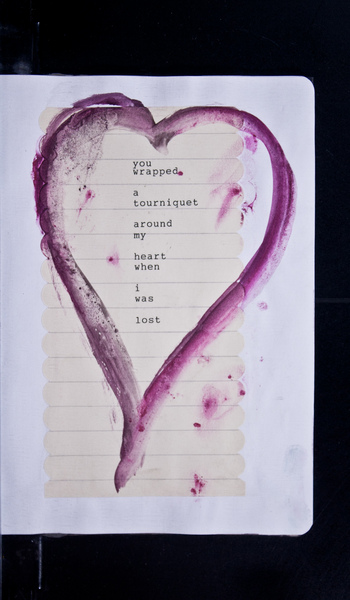 you
wrapped
a
tourniquet
around
my
heart
when
i
was
lost